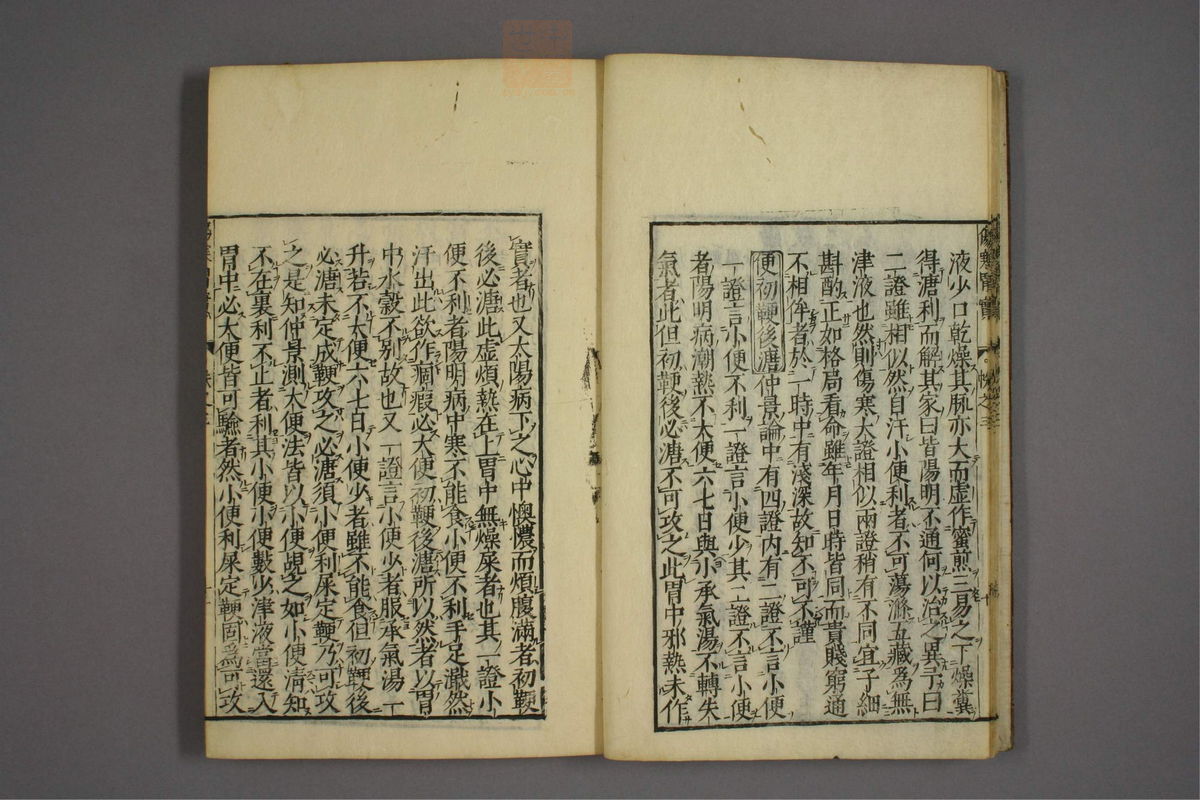 液少口乾燥其脈亦大而虛作蜜煎三易之下燥糞
得溏利而解其家曰皆陽明不通何以治之異予曰
二證雖相似然自汗小便利者不可蕩滌五藏爲無
津液也然則傷寒大證相似兩證稍有不同宜子細
斟酌正如格局看命雖年月日時皆同而貴賤窮通
不相侔者於一時中有淺深故知不可不謹
便初鞕後溏仲景論中有四證內有二證不言小便
一證言小便不利一證言小便少其二證不言小便
者陽明病潮熱不大便六七日與小承氣湯不轉失
氣者此但初鞕後必溏不可攻之此胃中邪熱未作
實者也又太陽病下之心中懊憹而煩腹滿者初鞕
後必溏此虛煩熱在上胃中無燥屎者也其一證小
便不利者陽明病中寒不能食小便不利手足濈然
汗出此欲作痼瘕必大便初鞕後溏所以然者以胃
中水穀不別故也又一證言小便少者服承氣湯一
升若不大便六七日小便少者雖不能食但初鞕後
必溏未定成鞕攻之必溏須小便利屎定鞕乃可攻
之是知仲景測大便法皆以小便覘之如小便清知
不在裏利不止者利其小便小便數少津液當還入
胃中必大便皆可驗者然小便利屎定鞕固爲可攻